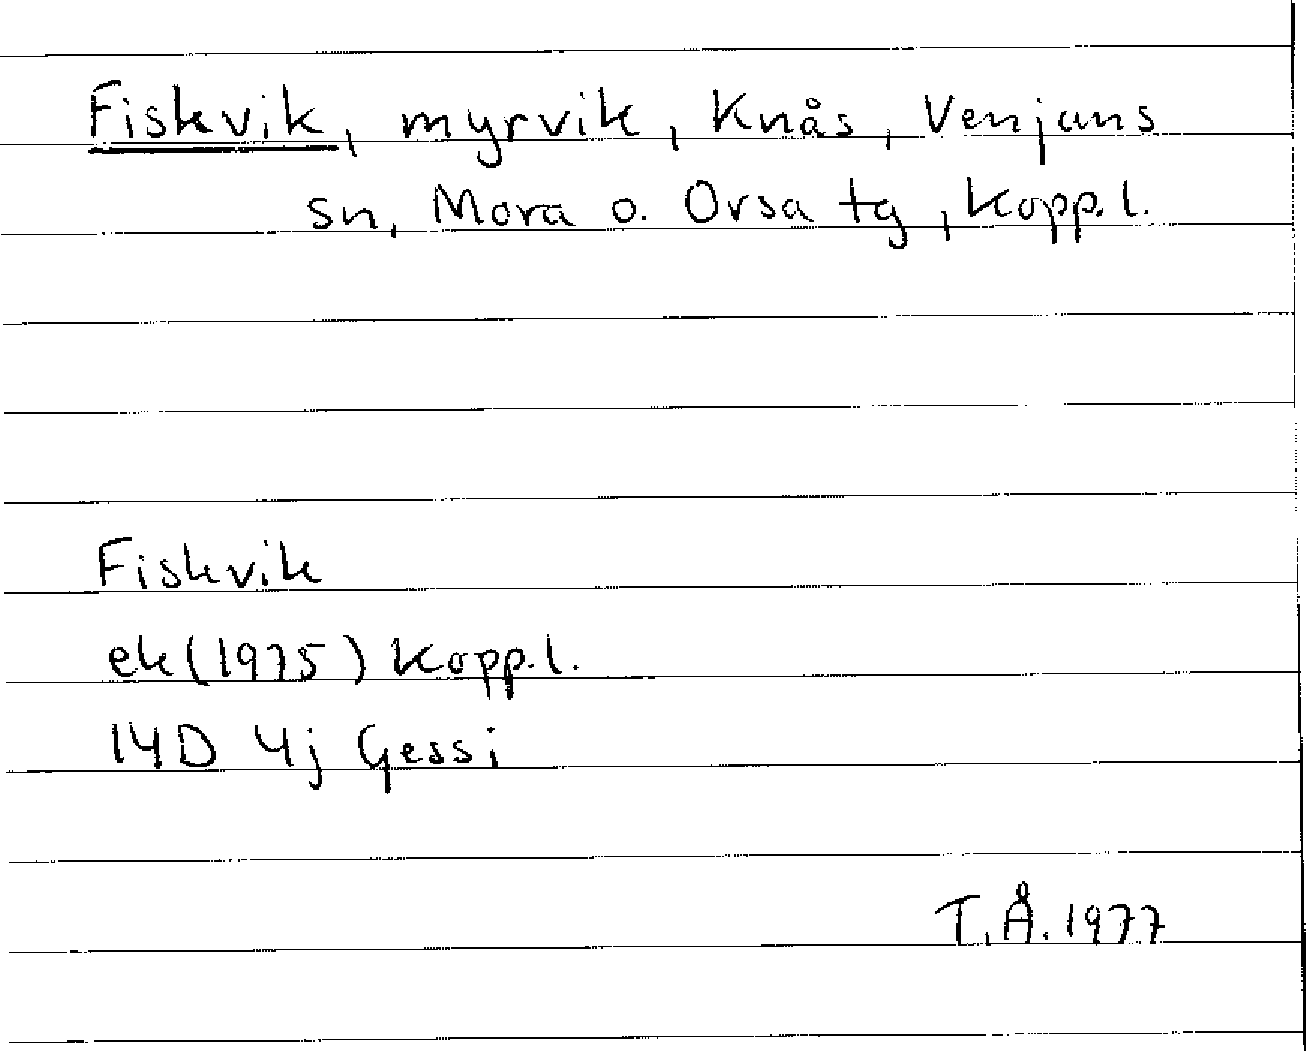 Fiskvik, myrvik, Knås, Venjans
sn, Mora o. Orsa tg, Kopp.l.
Fiskvik
ek(1975) Kopp.l.
14D 4j Gessi
T.Å. 1977